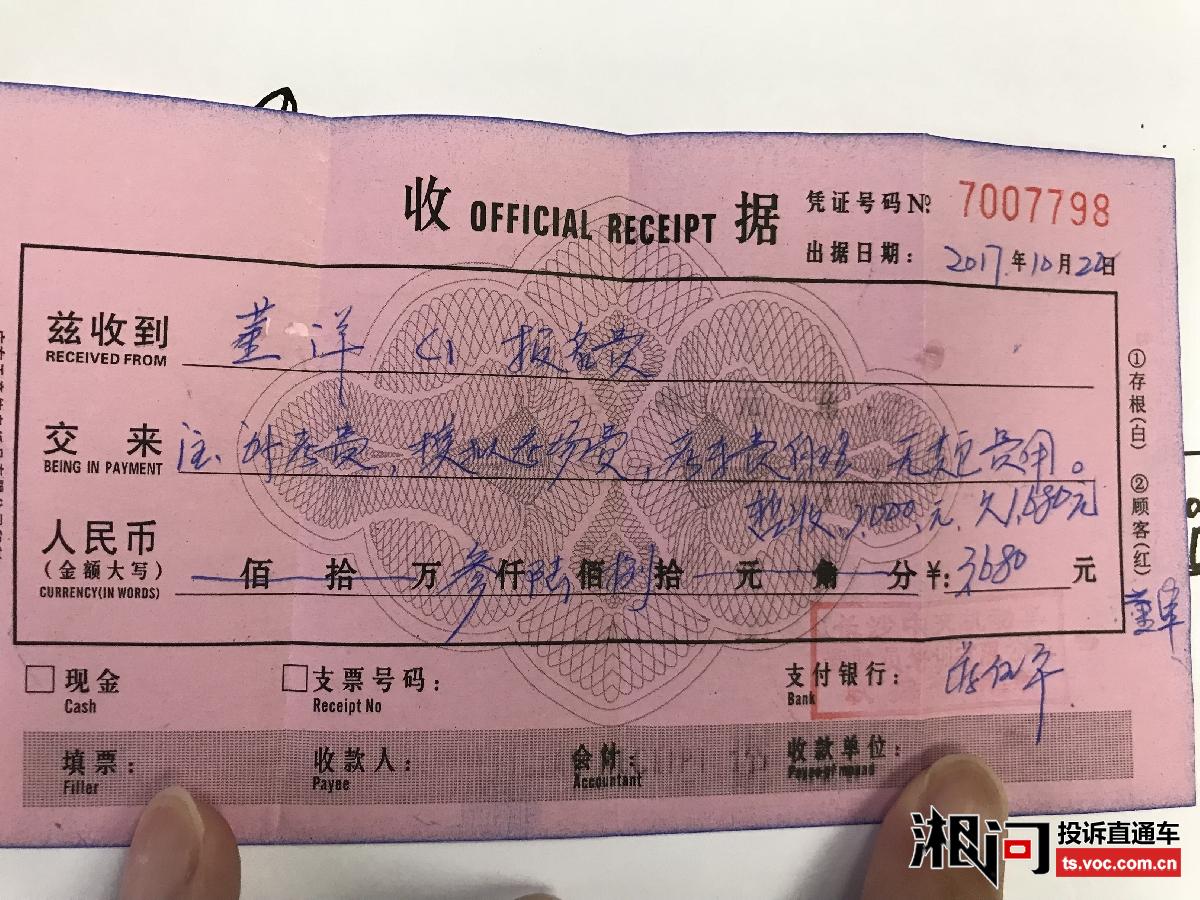 收 OFFICIAL RECEIPT 据
凭证号码 №: 7007798
出据日期: 2017年10月22日
兹收到 董洋 C1 报名费
RECEIVED FROM
交来 注: 补考费, 模拟进场费, 意外费
BEING IN PAYMENT
暂收2,000元, 欠1,680元
人民币
(金额大写) 佰 拾 万 叁仟 陆佰 捌拾 元 角 分 ¥: 3680 元
CURRENCY(IN WORDS)
①存根(白) ②顾客(红)
现金 支票号码: 支付银行:
Cash Receipt No Bank
填票: 收款人: 会计: 收款单位:
Filler Payee Accountant
湘问 投诉直通车
ts.voc.com.cn